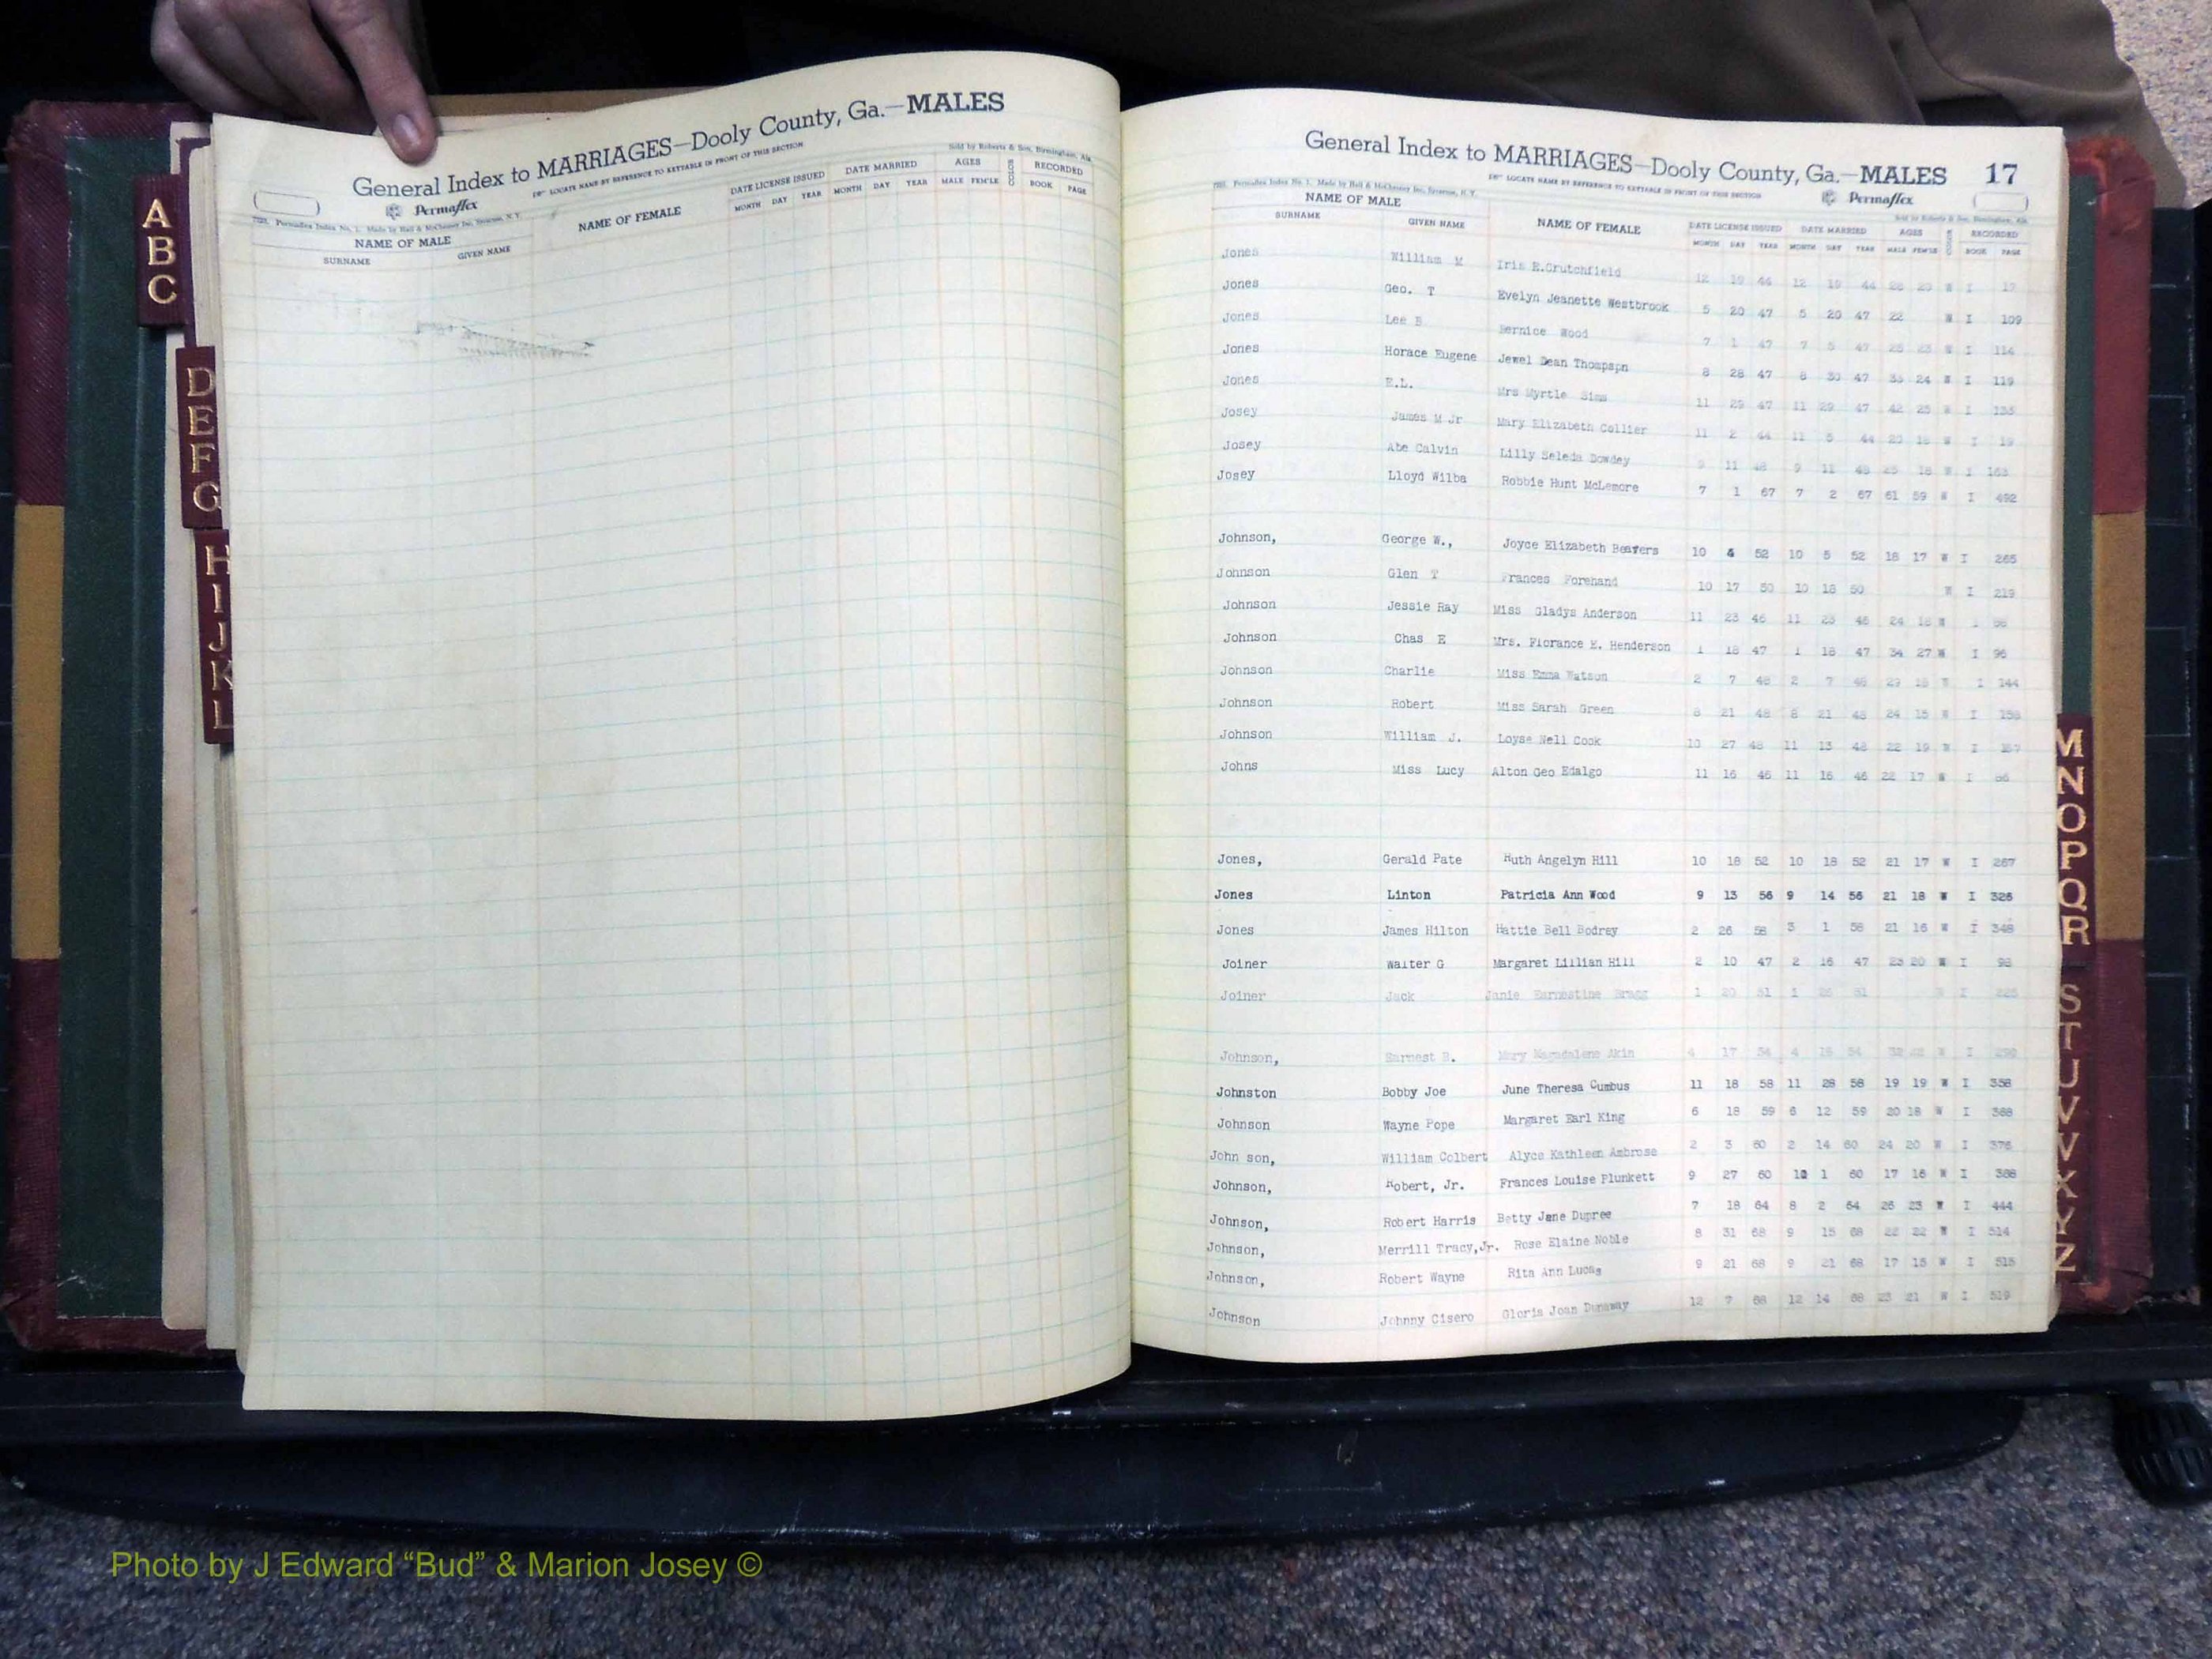 General Index to MARRIAGES—Dooly County, Ga.—MALES
LOCATE NAME BY REFERENCE TO KEYTABLE IN FRONT OF THIS SECTION
Permaflex
Sold by Roberts & Son, Birmingham, Ala.
NAME OF MALE
SURNAME GIVEN NAME
NAME OF FEMALE
DATE LICENSE ISSUED DATE MARRIED AGES RECORDED
MONTH DAY YEAR MONTH DAY YEAR MALE FEM'LE BOOK PAGE
A
B
C
D
E
F
G
H
I
J
K
L
General Index to MARRIAGES—Dooly County, Ga.—MALES 17
LOCATE NAME BY REFERENCE TO KEYTABLE IN FRONT OF THIS SECTION
Permaflex
Sold by Roberts & Son, Birmingham, Ala.
NAME OF MALE
SURNAME GIVEN NAME NAME OF FEMALE
DATE LICENSE ISSUED DATE MARRIED AGES RECORDED
MONTH DAY YEAR MONTH DAY YEAR MALE FEM'LE BOOK PAGE
Jones William M Iris R.Crutchfield 12 19 44 12 19 44 W I
Jones Geo. T Evelyn Jeanette Westbrook 5 20 47 5 20 47 22 W I 109
Jones Lee B Bernice Wood 7 1 47 7 5 47 W I 114
Jones Horace Eugene Jewel Dean Thompspn 8 28 47 8 30 47 33 24 W I 119
Jones E.L. Mrs Myrtle Sims 11 29 47 11 29 47 42 25 W I
Josey James M Jr Mary Elizabeth Collier 11 2 44 11 5 44 W I 19
Josey Abe Calvin Lilly Seleda Dowdey 9 11 48 9 11 48 W I 163
Josey Lloyd Wilba Robbie Hunt McLemore 7 1 67 7 2 67 61 59 W I 492
Johnson, George W., Joyce Elizabeth Beavers 10 4 52 10 5 52 18 17 W I 265
Johnson Glen T Frances Forehand 10 17 50 10 18 50 W I 219
Johnson Jessie Ray Miss Gladys Anderson 11 23 46 11 23 46 24 18 W I
Johnson Chas E Mrs. Florance E. Henderson 1 18 47 1 18 47 34 27 W I 96
Johnson Charlie Miss Emma Watson 2 7 48 2 7 48 W I 144
Johnson Robert Miss Sarah Green 8 21 48 8 21 48 24 15 W I
Johnson William J. Loyse Nell Cook 10 27 48 11 13 48 22 19 W I
Johns Miss Lucy Alton Geo Edalgo 11 16 46 11 16 46 22 17 W I
Jones, Gerald Pate Ruth Angelyn Hill 10 18 52 10 18 52 21 17 W I 267
Jones Linton Patricia Ann Wood 9 13 56 9 14 56 21 18 W I 326
Jones James Hilton Hattie Bell Bodrey 2 26 58 3 1 58 21 16 W I 348
Joiner Walter G Margaret Lillian Hill 2 10 47 2 16 47 23 20 W I 98
Joiner Jack Janie Earnestine Bragg 1 20 51 1 26 51 W I
Johnson, Earnest B. Mary Magadalene Akin 4 17 54 4 18 54 W I
Johnston Bobby Joe June Theresa Cumbus 11 18 58 11 28 58 19 19 W I 358
Johnson Wayne Pope Margaret Earl King 6 18 59 6 12 59 20 18 W I 368
John son, William Colbert Alyce Kathleen Ambrose 2 3 60 2 14 60 24 20 W I 376
Johnson, Robert, Jr. Frances Louise Plunkett 9 27 60 10 1 60 17 16 W I 388
Johnson, Robert Harris Betty Jane Dupree 7 18 64 8 2 64 26 23 W I 444
Johnson, Merrill Tracy,Jr. Rose Elaine Noble 8 31 68 9 15 68 22 22 W I 514
Johnson, Robert Wayne Rita Ann Lucas 9 21 68 9 21 68 17 15 W I 515
Johnson Johnny Cisero Gloria Joan Dunaway 12 7 68 12 14 68 23 21 W I 519
M
N
O
P
Q
R
S
T
U
V
W
X
Y
Z
Photo by J Edward “Bud” & Marion Josey ©